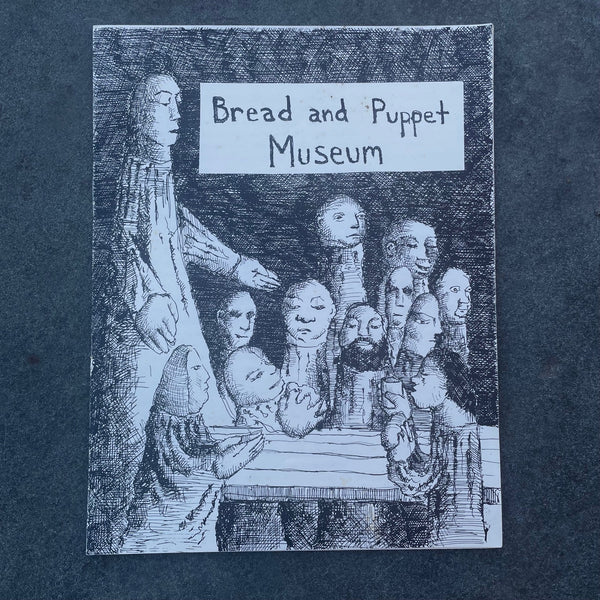 Bread and Puppet
Museum